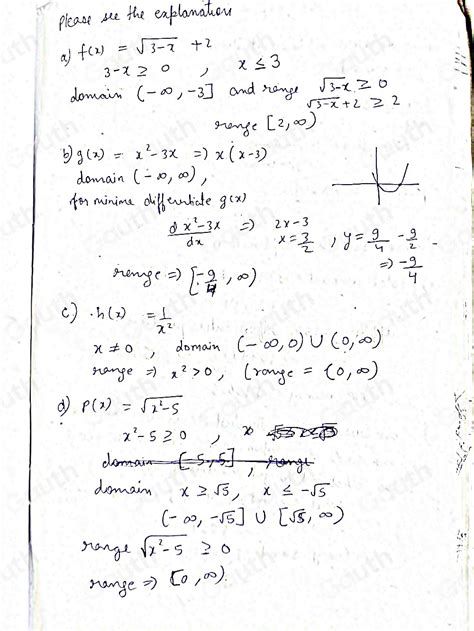 please see the explanation
a) f(x) = √3-x + 2
3-x ≥ 0 , x ≤ 3
domain (-∞, -3] and range √3-x ≥ 0
√3-x + 2 ≥ 2
range [2, ∞)
b) g(x) = x²-3x => x(x-3)
domain (-∞, ∞),
for minima differentiate g(x)
d x²-3x / dx => 2x-3
x = 3/2 , y = 9/4 - 9/2
=> -9/4
range => [-9/4, ∞)
c) h(x) = 1/x²
x ≠ 0 , domain (-∞, 0) ∪ (0, ∞)
range => x² > 0, (range = (0, ∞)
d) P(x) = √x²-5
x²-5 ≥ 0 , x
domain [-5, 5] , range
domain x ≥ √5, x ≤ -√5
(-∞, -√5] ∪ [√5, ∞)
range √x²-5 ≥ 0
range => [0, ∞)